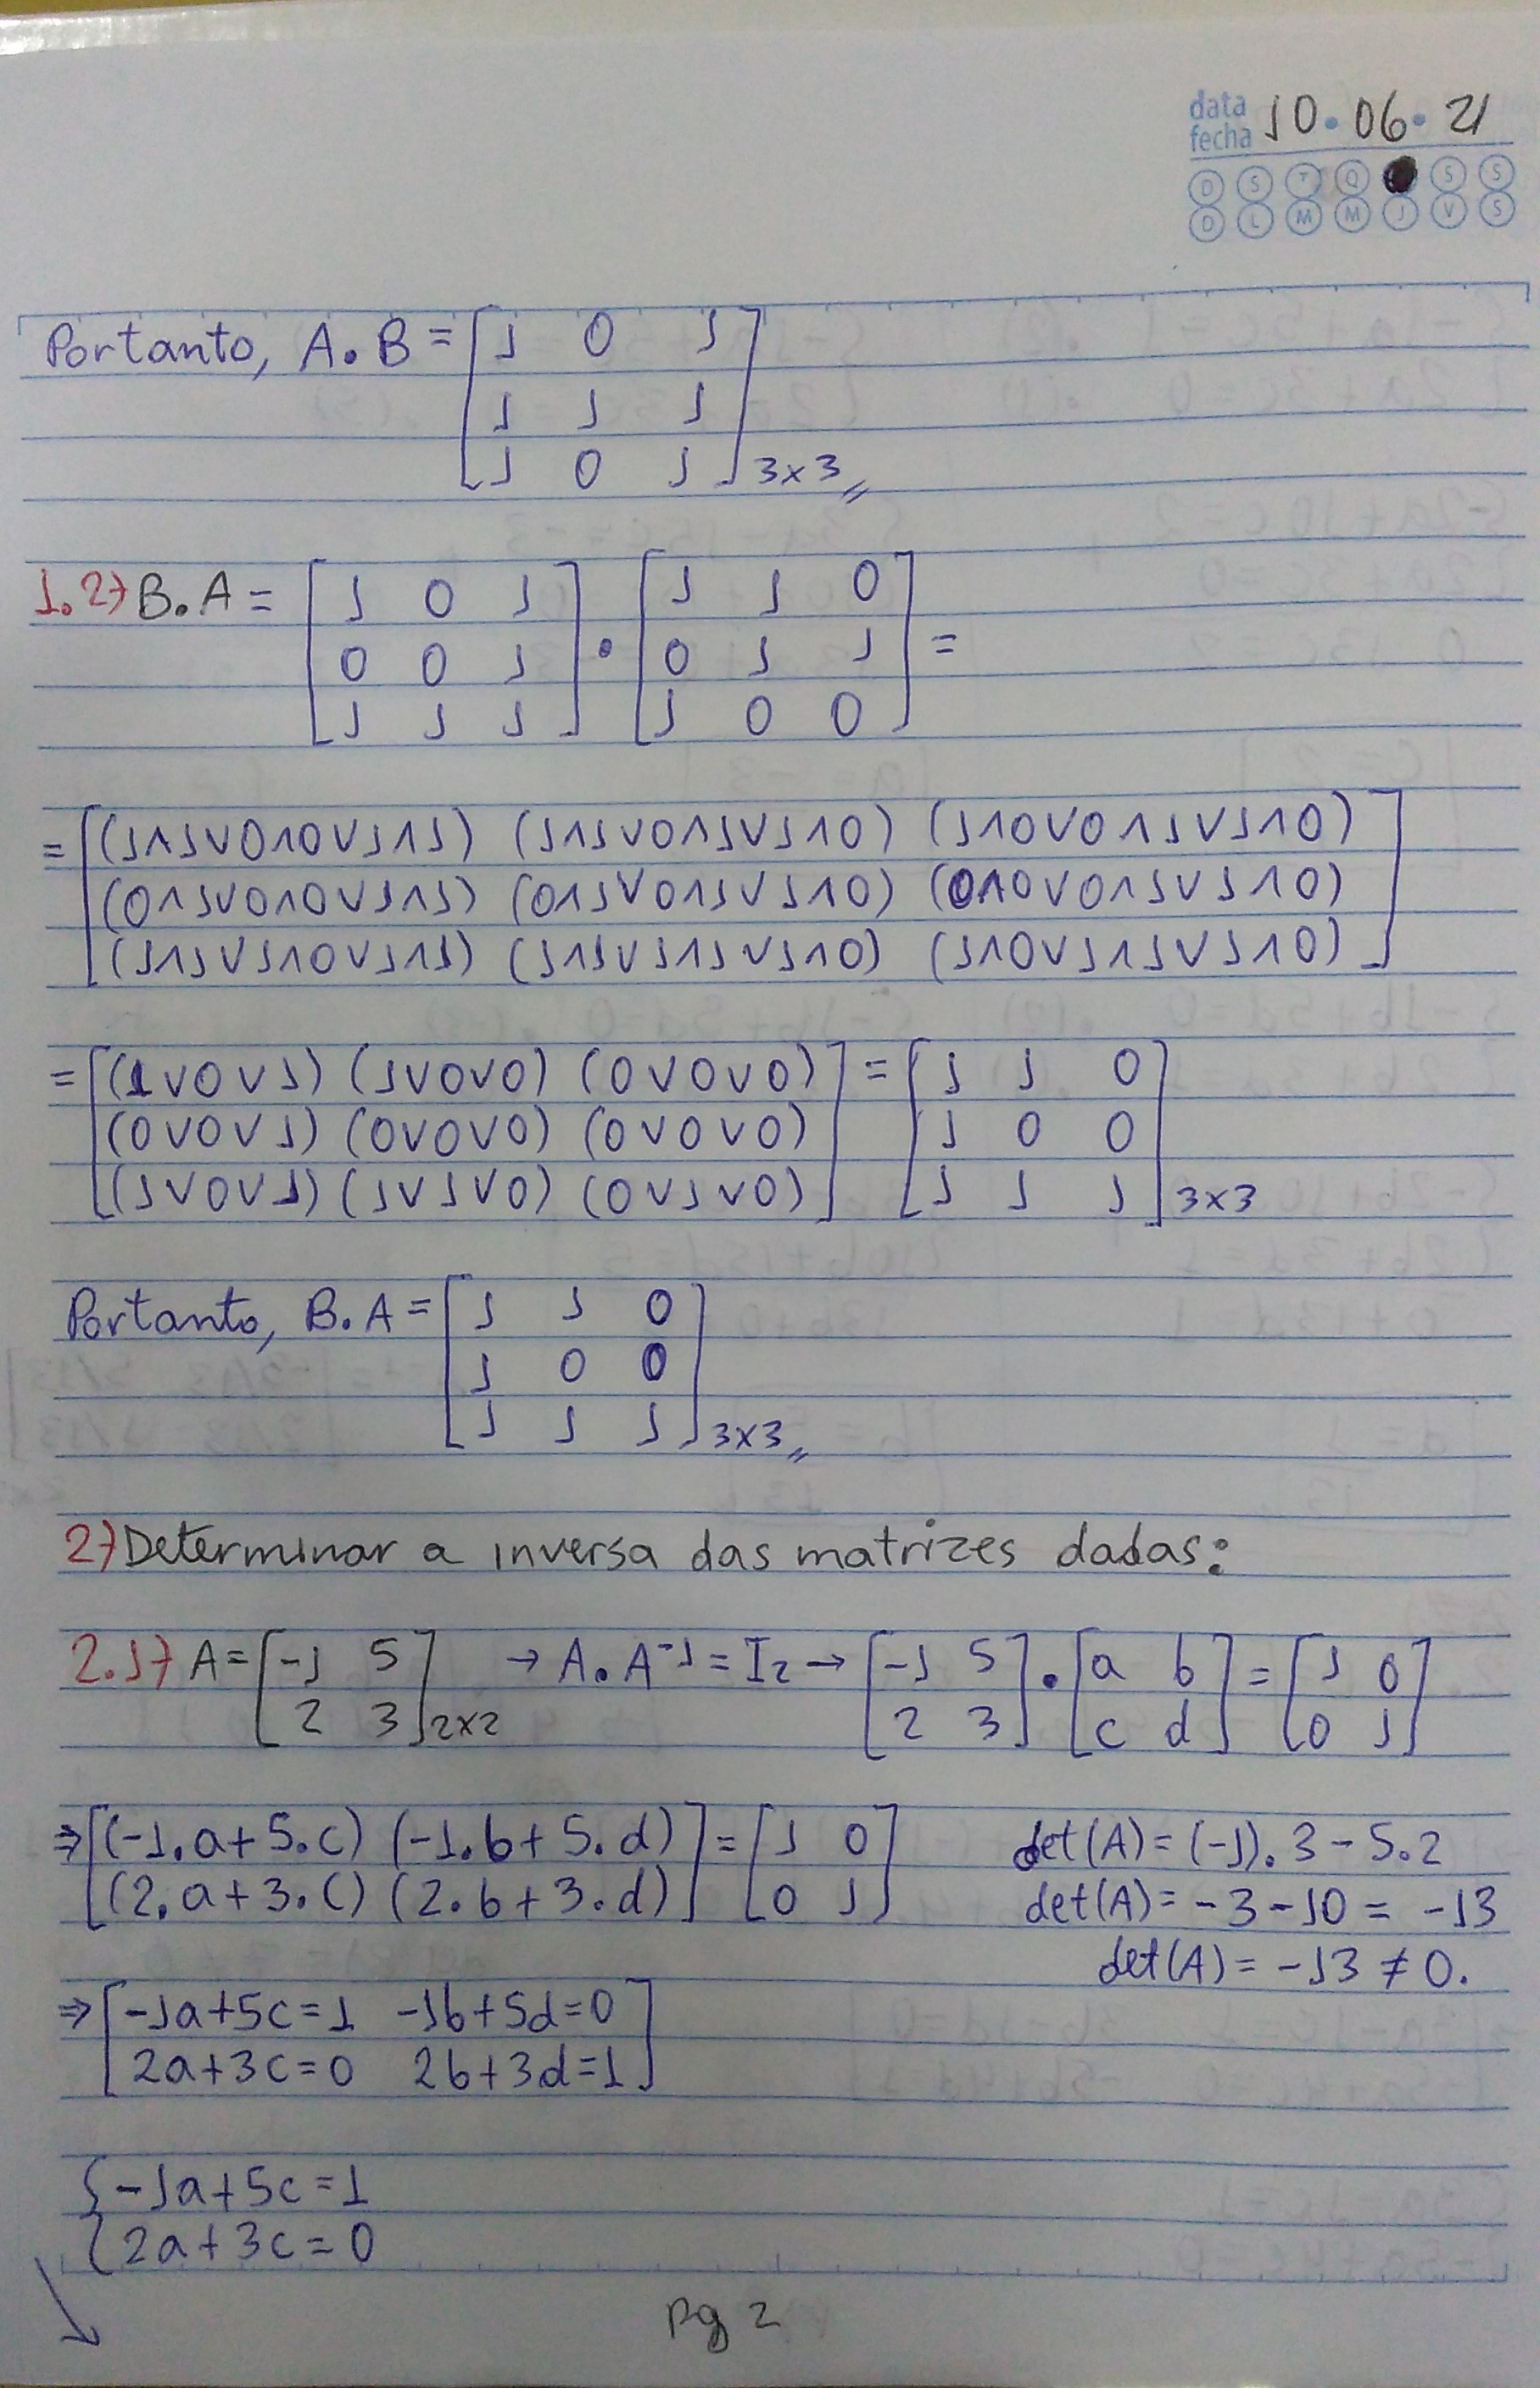 data
fecha 10.06.21
D S T Q S S
D L M M J V S
Portanto, A.B = [1 0 1
1 1 1
1 0 1] 3x3
1.2) B.A = [1 0 1 . [1 1 0 =
0 0 1 0 1 1
1 1 1] 1 0 0]
= [(1∧1∨0∧0∨1∧1) (1∧1∨0∧1∨1∧0) (1∧0∨0∧1∨1∧0)
(0∧1∨0∧0∨1∧1) (0∧1∨0∧1∨1∧0) (0∧0∨0∧1∨1∧0)
(1∧1∨1∧0∨1∧1) (1∧1∨1∧1∨1∧0) (1∧0∨1∧1∨1∧0)]
= [(1∨0∨1) (1∨0∨0) (0∨0∨0) = [1 1 0
(0∨0∨1) (0∨0∨0) (0∨0∨0) 1 0 0
(1∨0∨1) (1∨1∨0) (0∨1∨0)] 1 1 1] 3x3
Portanto, B.A = [1 1 0
1 0 0
1 1 1] 3x3
2) Determinar a inversa das matrizes dadas:
2.1) A = [-1 5 → A.A⁻¹ = I₂ → [-1 5 . [a b = [1 0
2 3] 2x2 2 3] c d] 0 1]
⇒ [(-1.a+5.c) (-1.b+5.d) = [1 0 det(A) = (-1).3 - 5.2
(2.a+3.c) (2.b+3.d)] 0 1] det(A) = -3-10 = -13
det(A) = -13 ≠ 0.
⇒ [-1a+5c=1 -1b+5d=0
2a+3c=0 2b+3d=1]
{-1a+5c=1
2a+3c=0
↘
Pg 2